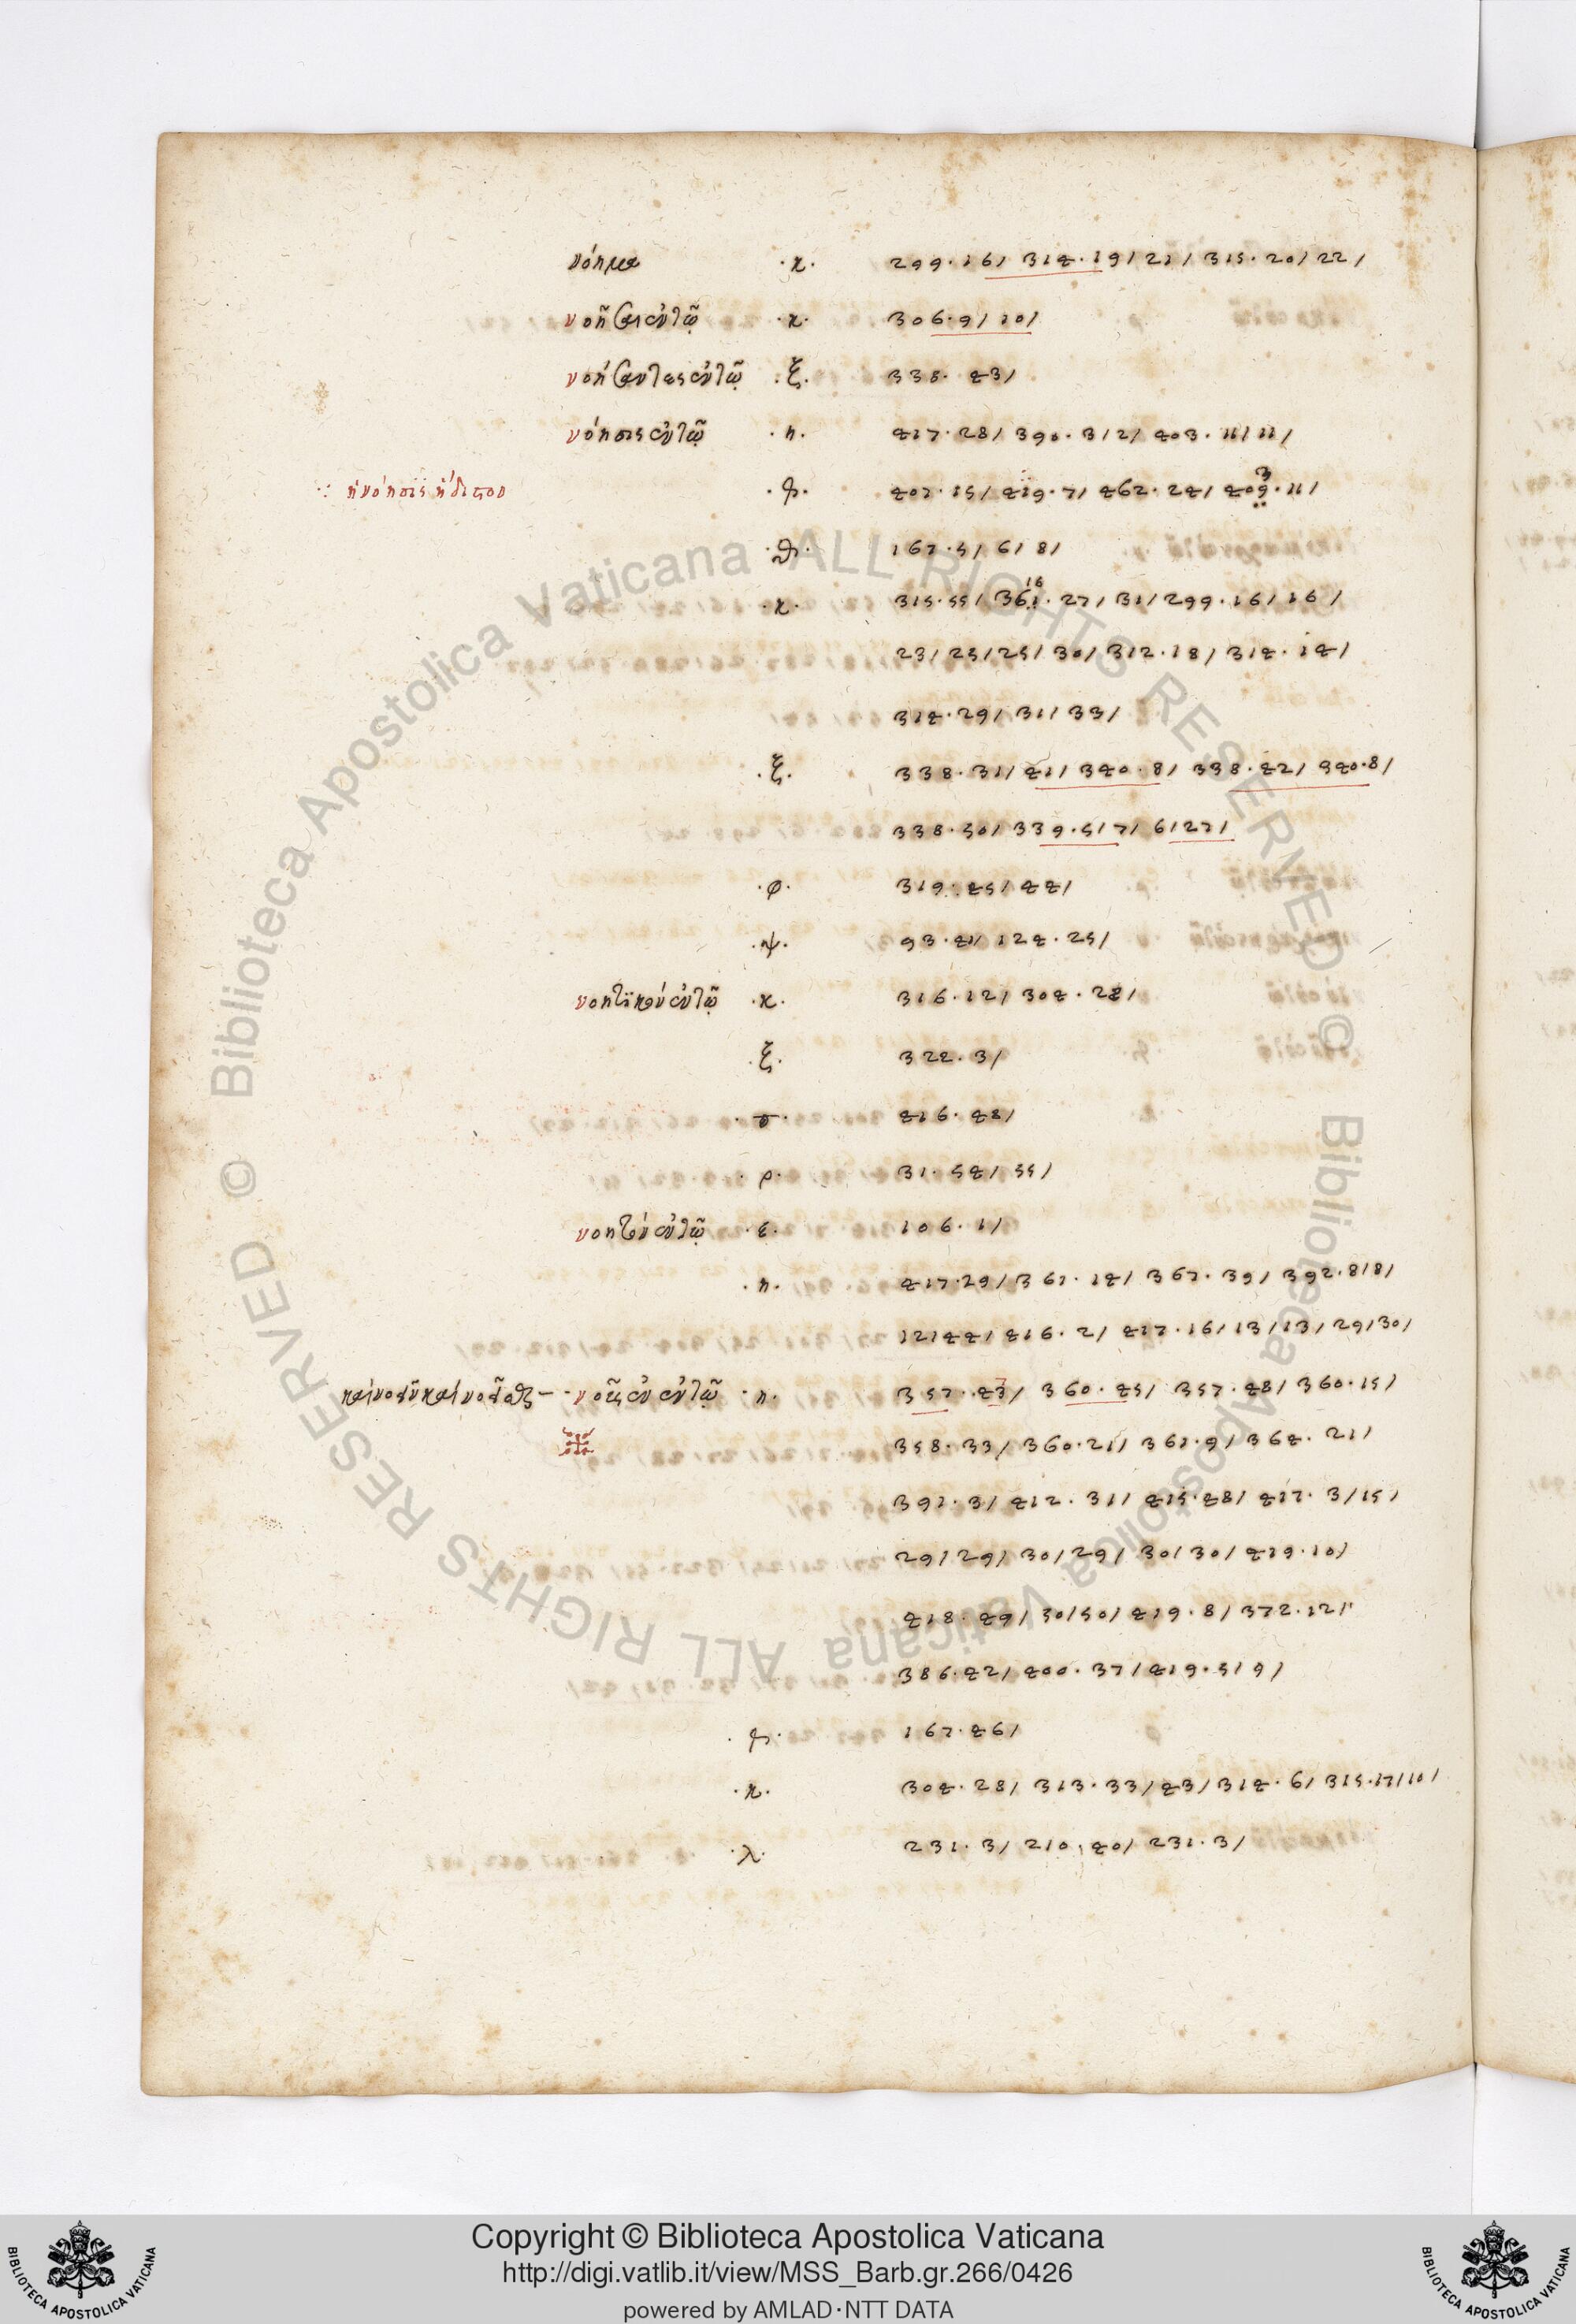 νόημα ·κ· 299·16/ 314·19/21/ 315·20/22/
νοῆσαι ἐν τῷ ·κ· 306·9/ 10/
νοήσαντες ἐν τῷ ·ξ· 338· 43/
νόησις ἐν τῷ ·η· 417·28/ 390·312/ 403·11/11/
·: ἡ νόησις ἡ δίττου ·φ· 401·15/ 419·7/ 462·24/ 409·11/
3
·θ· 167·5/ 6/ 8/
16
·κ· 315·55/ 361·27/31/299·16/16/
23/25/25/30/312·18/ 314·14/
314·29/31/33/
·ξ· 338·31/41/340·8/ 338·42/ 340·8/
338·50/339·5/7/ 6/27/
·φ· 319·45/44/
·ψ· 93·41/ 124·25/
νοητικὸν ἐν τῷ ·κ· 316·12/304·28/
·ξ· 322·3/
416·48/
·ρ· 31·54/55/
νοητὸν ἐν τῷ ·ε· 106·1/
·η· 417·29/361·14/ 367·39/ 392·8/8/
12/44/416·2/ 417·16/13/13/29/30/
ἐν τῷ ·η· 357·43/ 360·45/ 357·48/360·15/
358·33/360·21/361·9/364·21/
391·3/412·31/415·48/417·3/15/
29/29/30/29/30/30/419·10/
418·49/50/50/419·8/372·12/
386·42/400·37/419·5/9/
·φ· 167·46/
·κ· 304·28/ 313·33/43/314·6/315·17/10/
·λ· 231·3/ 210·40/ 231·3/
Biblioteca Apostolica Vaticana ALL RIGHTS RESERVED ©
Biblioteca Apostolica Vaticana ALL RIGHTS RESERVED ©
Copyright © Biblioteca Apostolica Vaticana
http://digi.vatlib.it/view/MSS_Barb.gr.266/0426
powered by AMLAD·NTT DATA
BIBLIOTECA APOSTOLICA VATICANA
BIBLIOTECA APOSTOLICA VATICANA